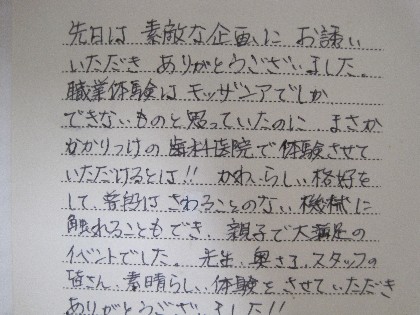 先日は 素敵な企画に お誘い
いただき ありがとうございました。
職業体験は キッザニアでしか
できないものと思っていたのに まさか
かかりつけの歯科医院で体験させて
いただけるとは!! かわいらしい格好を
して、普段は さわることのない 機械に
触れることもでき、親子で大満足の
イベントでした。 先生、奥さま、スタッフの
皆さん、素晴らしい体験をさせていただき
ありがとうございました!!